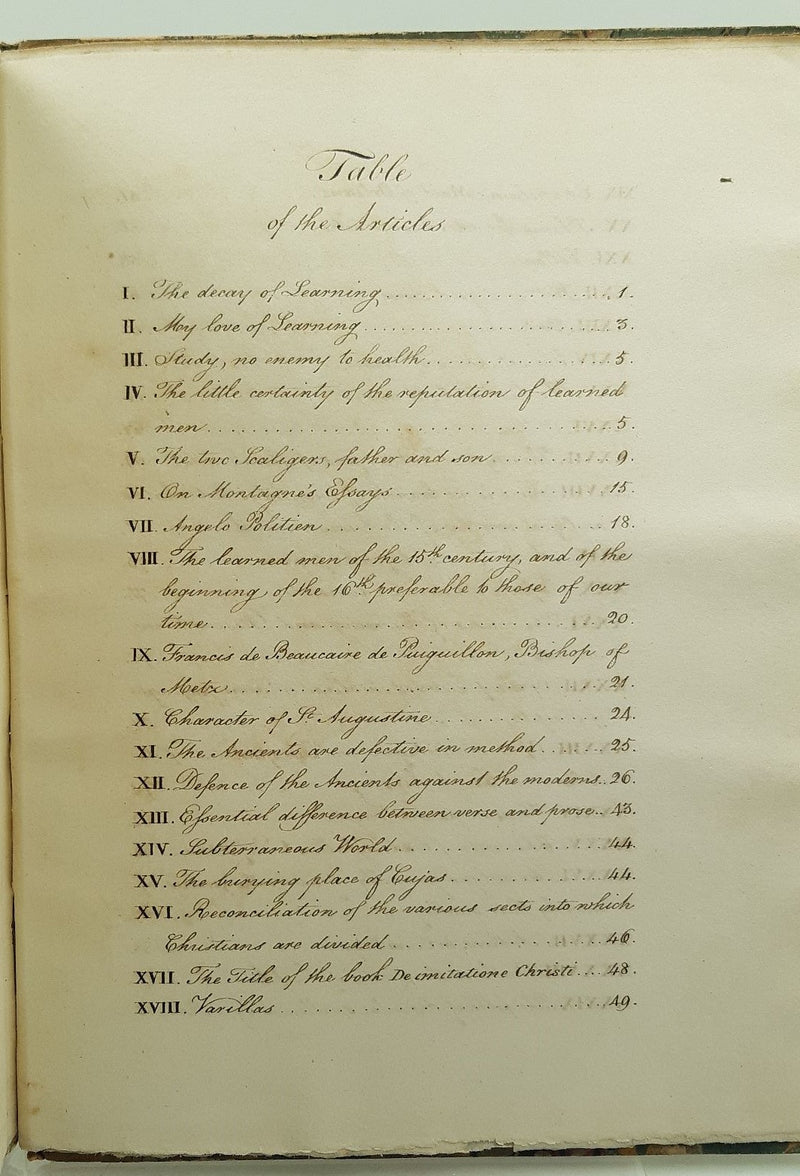 Table
of the Articles
I. The decay of Learning.......................1.
II. My love of Learning.......................3.
III. Study, no enemy to health.................5.
IV. The little certainty of the reputation of learned
men.......................5.
V. The two Scaligers, father and son...........9.
VI. On Montagne's Essays.....................15.
VII. Angelo Politien.......................18.
VIII. The learned men of the 15th century, and of the
beginning of the 16th preferable to those of our
time.......................20.
IX. Francis de Beaucaire de Puiguillon, Bishop of
Metz.......................21.
X. Character of St Augustine................24.
XI. The Ancients are defective in method.......25.
XII. Defence of the Ancients against the moderns..26.
XIII. Essential difference between verse and prose..43.
XIV. Subterraneous World...................44.
XV. The burying place of Cujas...............44.
XVI. Reconciliation of the various sects into which
Christians are divided.................46.
XVII. The Title of the book De imitatione Christi...48.
XVIII. Varillas.......................49.